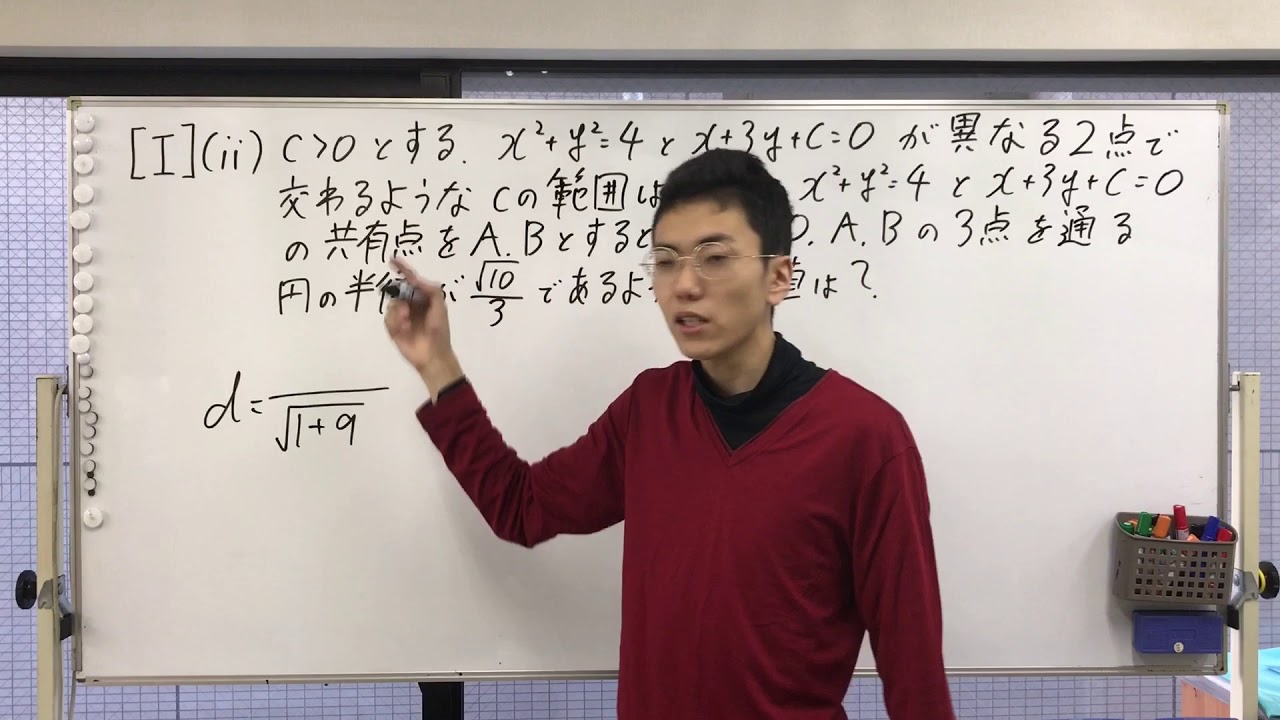 [I](ii) C>0とする. x²+y²=4とx+3y+C=0が異なる2点で
交わるようなCの範囲は x²+y²=4とx+3y+C=0
の共有点をA.Bとすると O. A. Bの3点を通る
円の半径が√10/3であるよ 値は?
d= /√1+9